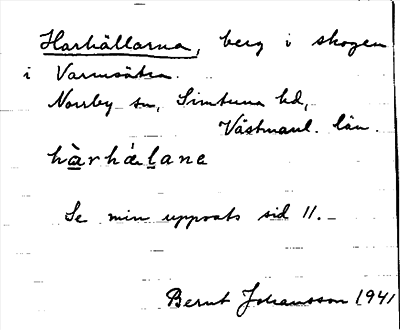 Harhällarna, berg i skogen
i Varmsätra.
Norrby sn, Simtuna hd,
Västmanl. län.
hàrhälane
Se min uppsats sid 11.
Bernt Johansson 1941